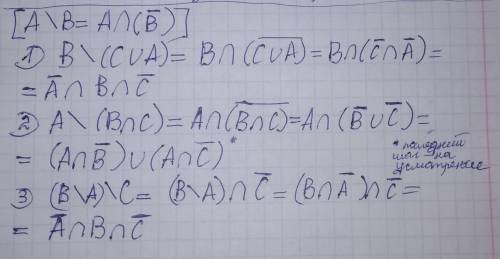 [A \ B = A ∩ (B̅)]
1) B \ (C ∪ A) = B ∩ (C̅ ̅∪̅ ̅A̅) = B ∩ (C̅ ∩ A̅) =
= A̅ ∩ B ∩ C̅
2) A \ (B ∩ C) = A ∩ (B̅ ̅∩̅ ̅C̅) = A ∩ (B̅ ∪ C̅) =
= (A ∩ B̅) ∪ (A ∩ C̅)*
* последний
шаг на
усмотрение
3) (B \ A) \ C = (B \ A) ∩ C̅ = (B ∩ A̅) ∩ C̅ =
= A̅ ∩ B ∩ C̅